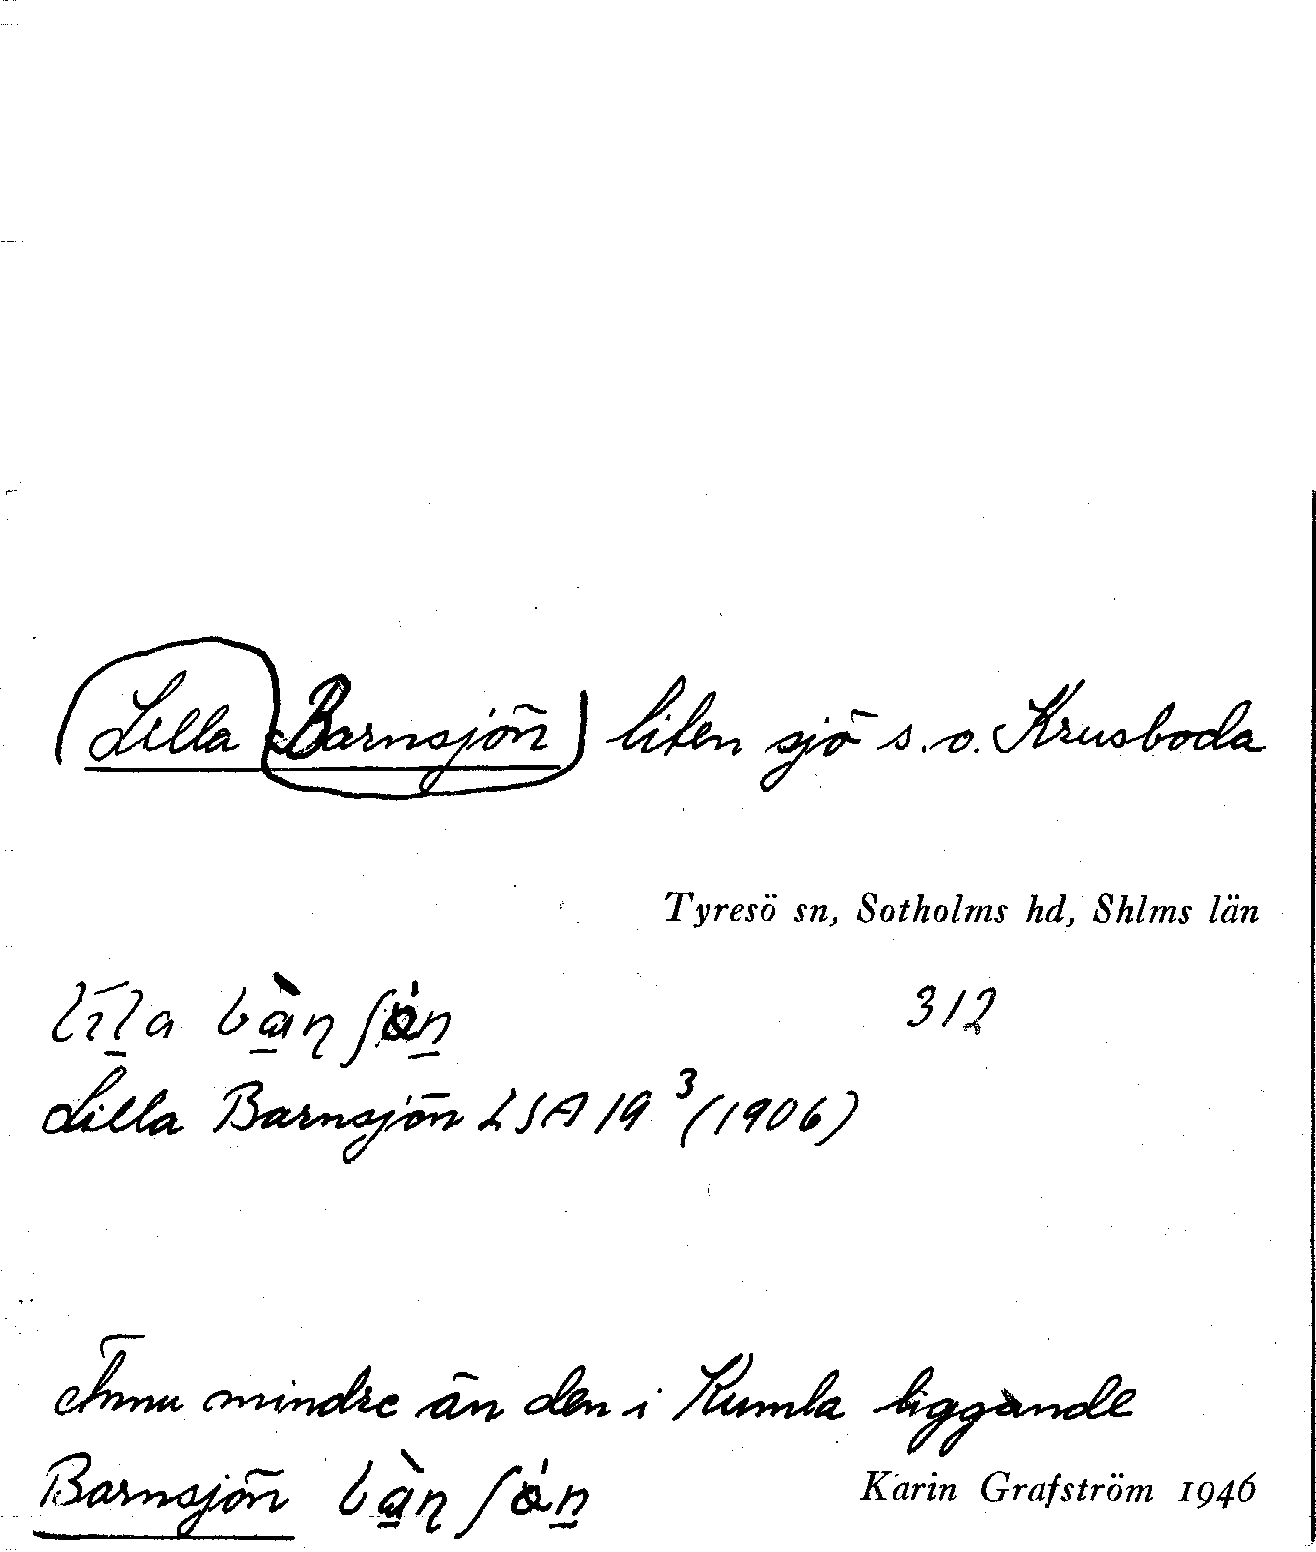 (Lilla Barnsjön) liten sjö s.o. Krusboda
Tyresö sn, Sotholms hd, Shlms län
312
Lilla Barnsjön LSA 19³ (1906)
Ännu mindre än den i Kumla liggande
Barnsjön
Karin Grafström 1946